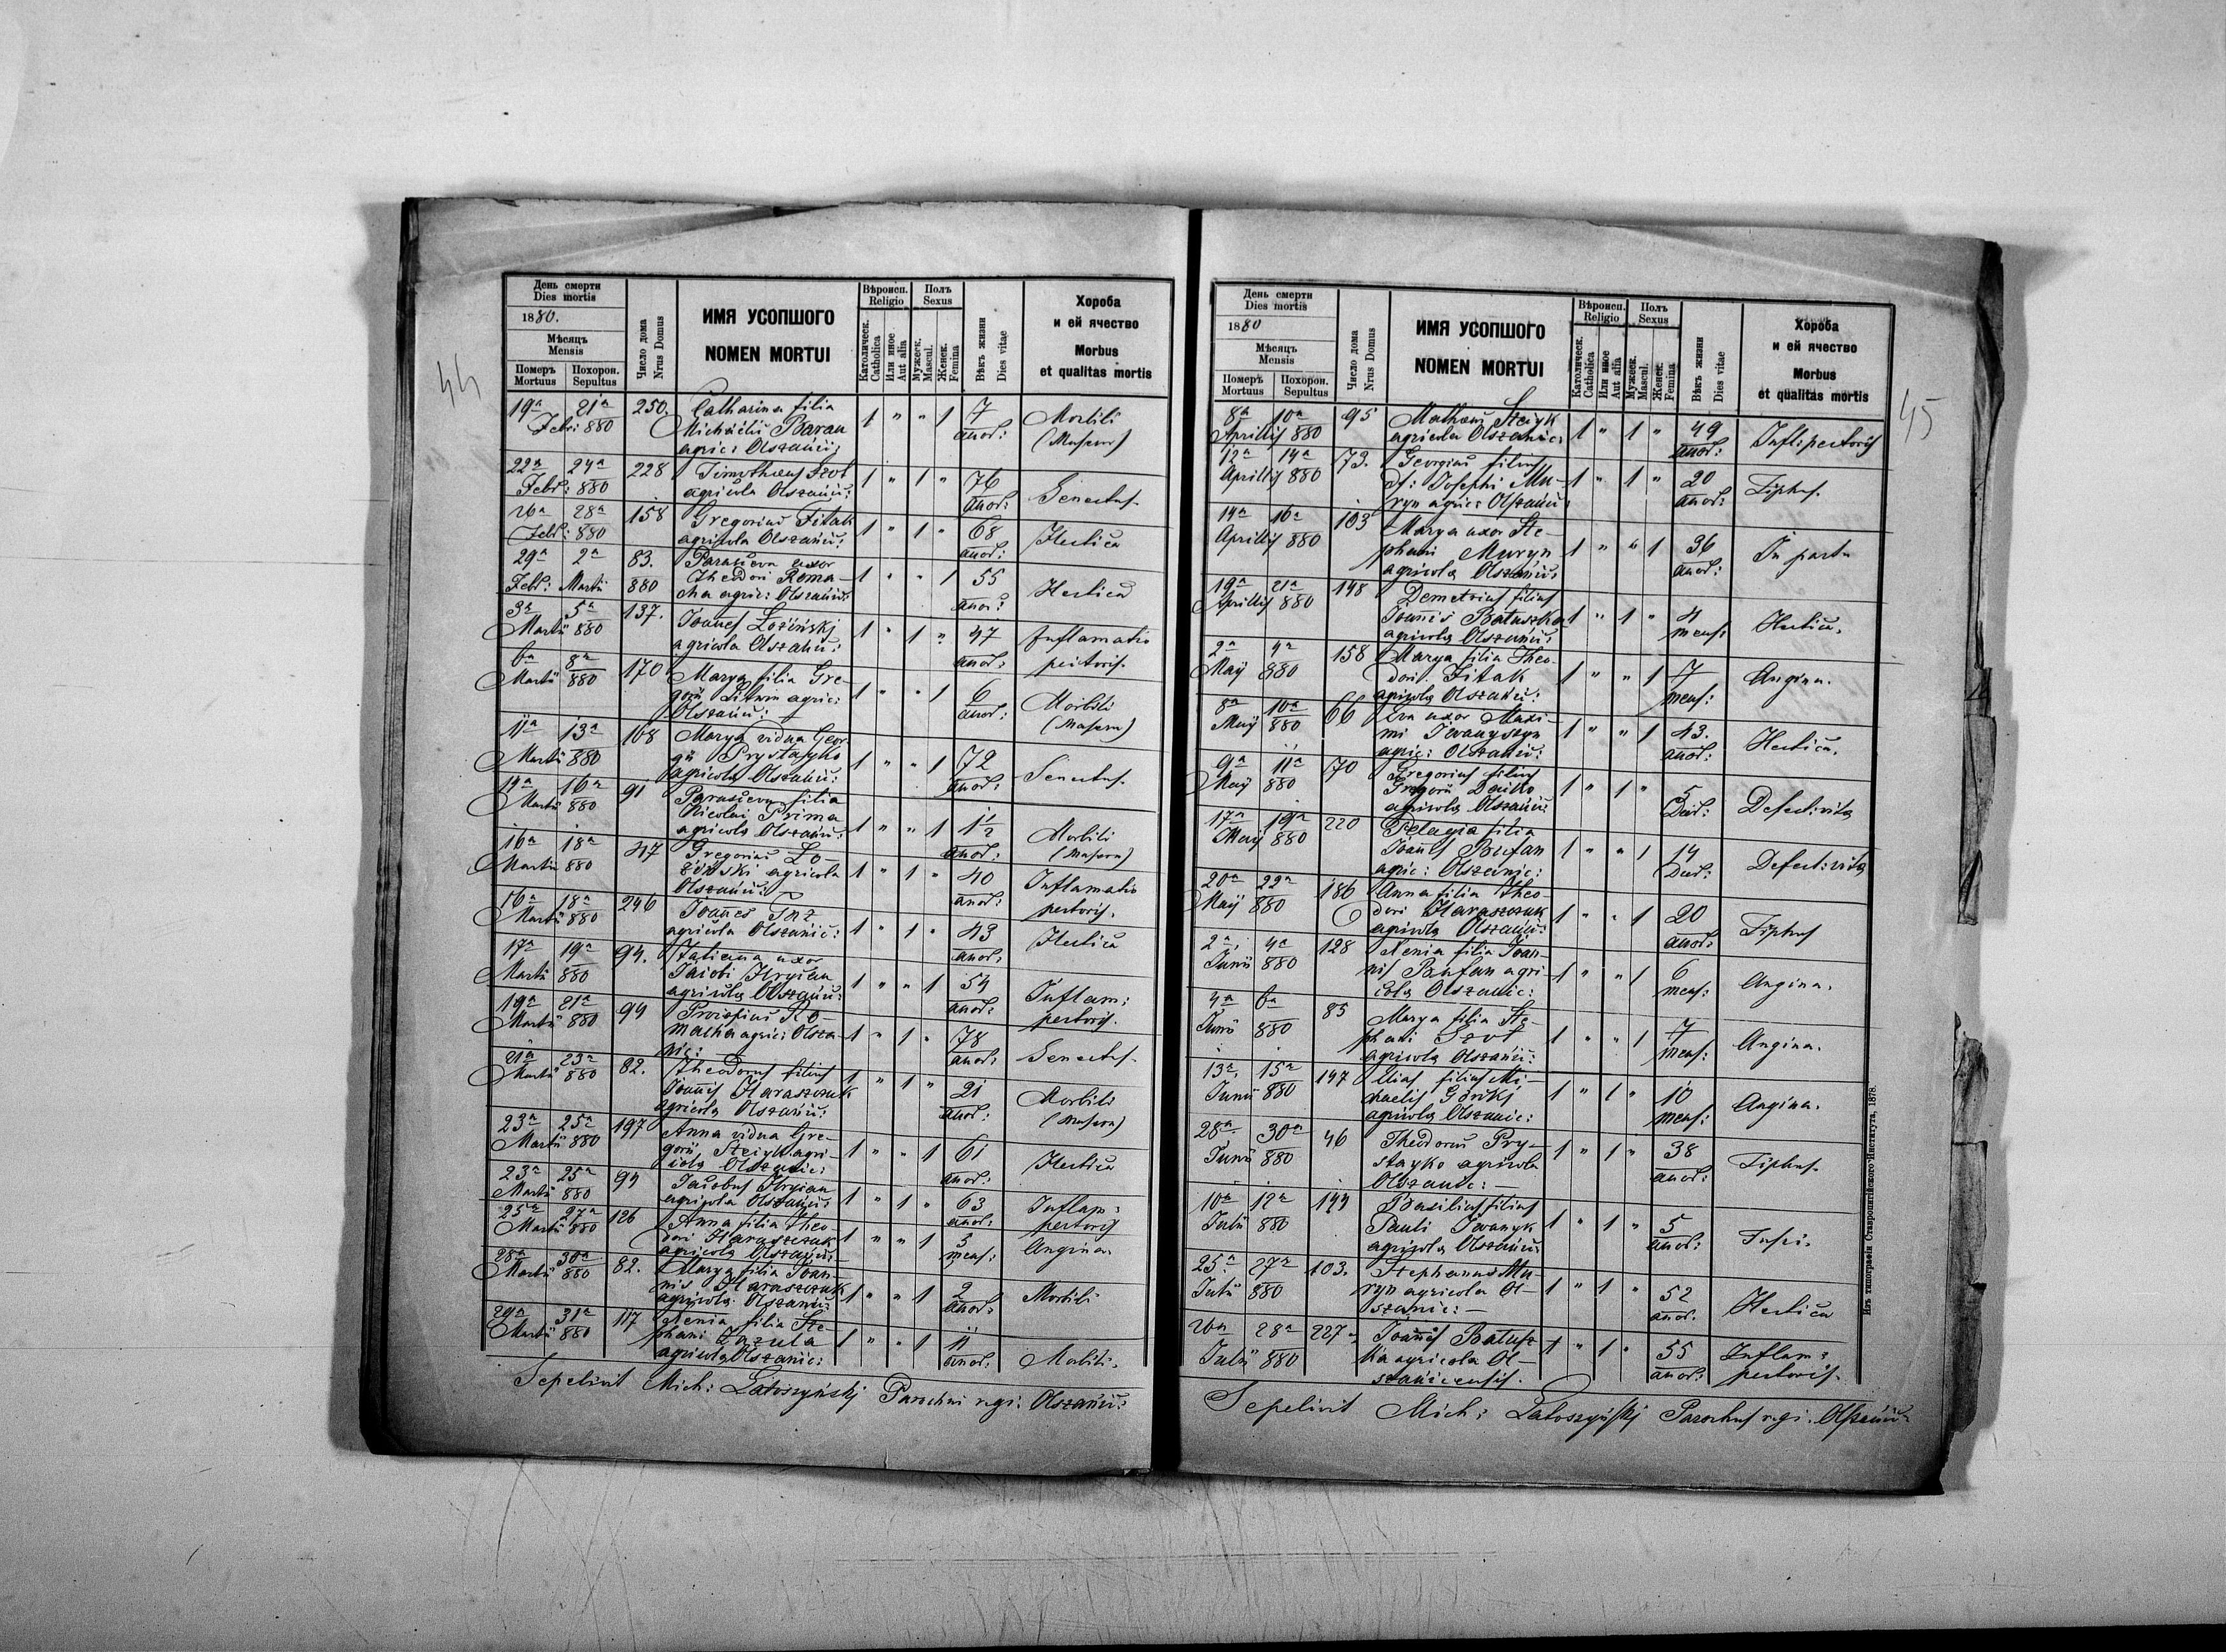 44
День смерти
Dies mortis
1880.
Мѣсяцъ
Mensis
Померъ
Mortuus
Похорон.
Sepultus
Число дома
Nrus Domus
ИМЯ УСОПШОГО
NOMEN MORTUI
Вѣроисп.
Religio
Католическ.
Catholica
Или иное
Aut alia
Полъ
Sexus
Мужеск.
Mascul.
Женск.
Femina
Вѣкъ жизни
Dies vitae
Хороба
и ей ячество
Morbus
et qualitas mortis
19a 21a 250. Catharina filia 1 " " 1 7 Morbili
Febr: 880 Michaelis Baran anor:
agric: Olszanic:
22a 24a 228 Timotheus Szot 1 " 1 " 76 Senectus.
Febr: 880 agricola Olszanic: anor:
26a 28a 158 Gregorius Fitak 1 " 1 " 68 Hectica
Febr: 880 agricola Olszanic: anor:
29a 2a 83. Parasceva uxor 1 " " 1 55 Hectica
Febr: Martii 880 Theodori Roma- anor:
cha agric: Olszanic:
3a 5a 137. Joannes Łoziński 1 " 1 " 47 Inflamatio
Martii 880 agricola Olszanic: anor: pectoris.
6a 8a 170 Marya filia Gre- 1 " " 1 6 Morbili
Martii 880 gorii agric: anor:
Olszanic:
11a 13a 168 Marya vidua Geor- 1 " " 1 72 Senectus.
Martii 880 gii Prystayko anor:
agricola Olszanic:
14a 16a 91 Parasceva filia 1 " " 1 1½ Morbili
Martii 880 Nicolai Prima anor:
agricola Olszanic:
16a 18a 47 Gregorius Ło- 1 " 1 " 40 Inflamatio
Martii 880 ziński agricola anor: pectoris.
Olszanic:
16a 18a 246 Joannes 1 " 1 " 43 Hectica
Martii 880 agricola Olszanic: anor:
17a 19a 94. Tatiana uxor 1 " " 1 54 Inflam:
Martii 880 Jacobi Hrycian anor: pectoris.
agricola Olszanic:
19a 21a 94 Procopius Ro- 1 " 1 " 78 Senectus.
Martii 880 macha agric: Olsza- anor:
nic:
21a 23a 82. Theodorus filius 1 " 1 " 21 Morbili
Martii 880 Joannis Haraszczuk anor:
agricola Olszanic:
23a 25a 197 Anna vidua Gre- 1 " " 1 61 Hectica
Martii 880 gorii Steiyk agri- anor:
cola Olszanic:
23a 25a 94 Jacobus Hrycian 1 " 1 " 63 Inflam:
Martii 880 agricola Olszanic: anor: pectoris
25a 27a 126 Anna filia Theo- 1 " " 1 5 Angina
Martii 880 dori Haraszczuk mens:
agricola Olszanic:
28a 30a 82. Marya filia Joan- 1 " " 1 2 Morbili
Martii 880 nis Haraszczuk anor:
agricola Olszanic:
29a 31a 117 Xenia filia Ste- 1 " " 1 11 Morbili.
Martii 880 phani Zazula anor:
agricola Olszanic:
Sepelivit Mich: Łatoszyński Parochus Olszanic:
45
День смерти
Dies mortis
1880
Мѣсяцъ
Mensis
Померъ
Mortuus
Похорон.
Sepultus
Число дома
Nrus Domus
ИМЯ УСОПШОГО
NOMEN MORTUI
Вѣроисп.
Religio
Католическ.
Catholica
Или иное
Aut alia
Полъ
Sexus
Мужеск.
Mascul.
Женск.
Femina
Вѣкъ жизни
Dies vitae
Хороба
и ей ячество
Morbus
et qualitas mortis
8a 10a 95 Matheus Steiyk 1 " 1 " 49 Infl: pectoris
Aprillis 880 agricola Olszanic: anor:
12a 14a 73. Georgius filius 1 " 1 " 20 Tiphus.
Aprillis 880 df: Josephi Mu- anor:
ryn agric: Olszanic:
14a 16a 103 Marya uxor Ste- 1 " " 1 36 In partu
Aprillis 880 phani Muryn anor:
agricola Olszanic:
19a 21a 148 Demetrius filius 1 " 1 " 4 Hectica.
Aprillis 880 Joannis Batuszka mens:
agricola Olszanic:
2a 4a 158 Marya filia Theo- 1 " " 1 7 Angina.
Maij 880 dori Fitak mens:
agricola Olszanic:
8a 10a 66 Eva uxor Maxi- 1 " " 1 43. Hectica.
Maij 880 mi Iwanyszyn anor:
agric: Olszanic:
9a 11a 70 Gregorius filius 1 " 1 " 5 Defect: vita
Maij 880 Gregorii Daćko Dier:
agricola Olszanic:
17a 19a 220 Pelagia filia 1 " " 1 14 Defect: vita
Maij 880 Joannes Bufan Dier:
agric: Olszanic:
20a 22a 186 Anna filia Theo 1 " " 1 20 Tiphus
Maij 880 dori Haraszczuk anor:
agricola Olszanic:
2a 4a 128 Xenia filia Joan- 1 " " 1 6 Angina.
Junii 880 nis Bufan agri- mens:
cola Olszanic:
4a 6a 85 Marya filia Ste- 1 " " 1 7 Angina.
Junii 880 phani Szot mens:
agricola Olszanic:
13a 15a 147 Elias filius Mi- 1 " 1 " 10 Angina.
Junii 880 chaelis Górskj mens:
agricola Olszanic:
28a 30a 46 Theodorus Pry- 1 " 1 " 38 Tiphus.
Junii 880 stayko agricola anor:
Olszanic:
10a 12a 144 Basilius filius 1 " 1 " 5
Julii 880 Pauli Iwanyk anor:
agricola Olszanic:
25a 27a 103. Stephanus Mu- 1 " 1 " 52 Hectica
Julii 880 ryn agricola Ol- anor.
szanic:
26a 28a 227 Joannes Batusz 1 " 1 " 55 Inflam:
Julii 880 ka agricola Ol- anor: pectoris.
szanicensis.
Sepelivit Mich: Łatoszyńskj Parochus Olszanic:
Изъ типографіи Ставропигійского Института, 1878.